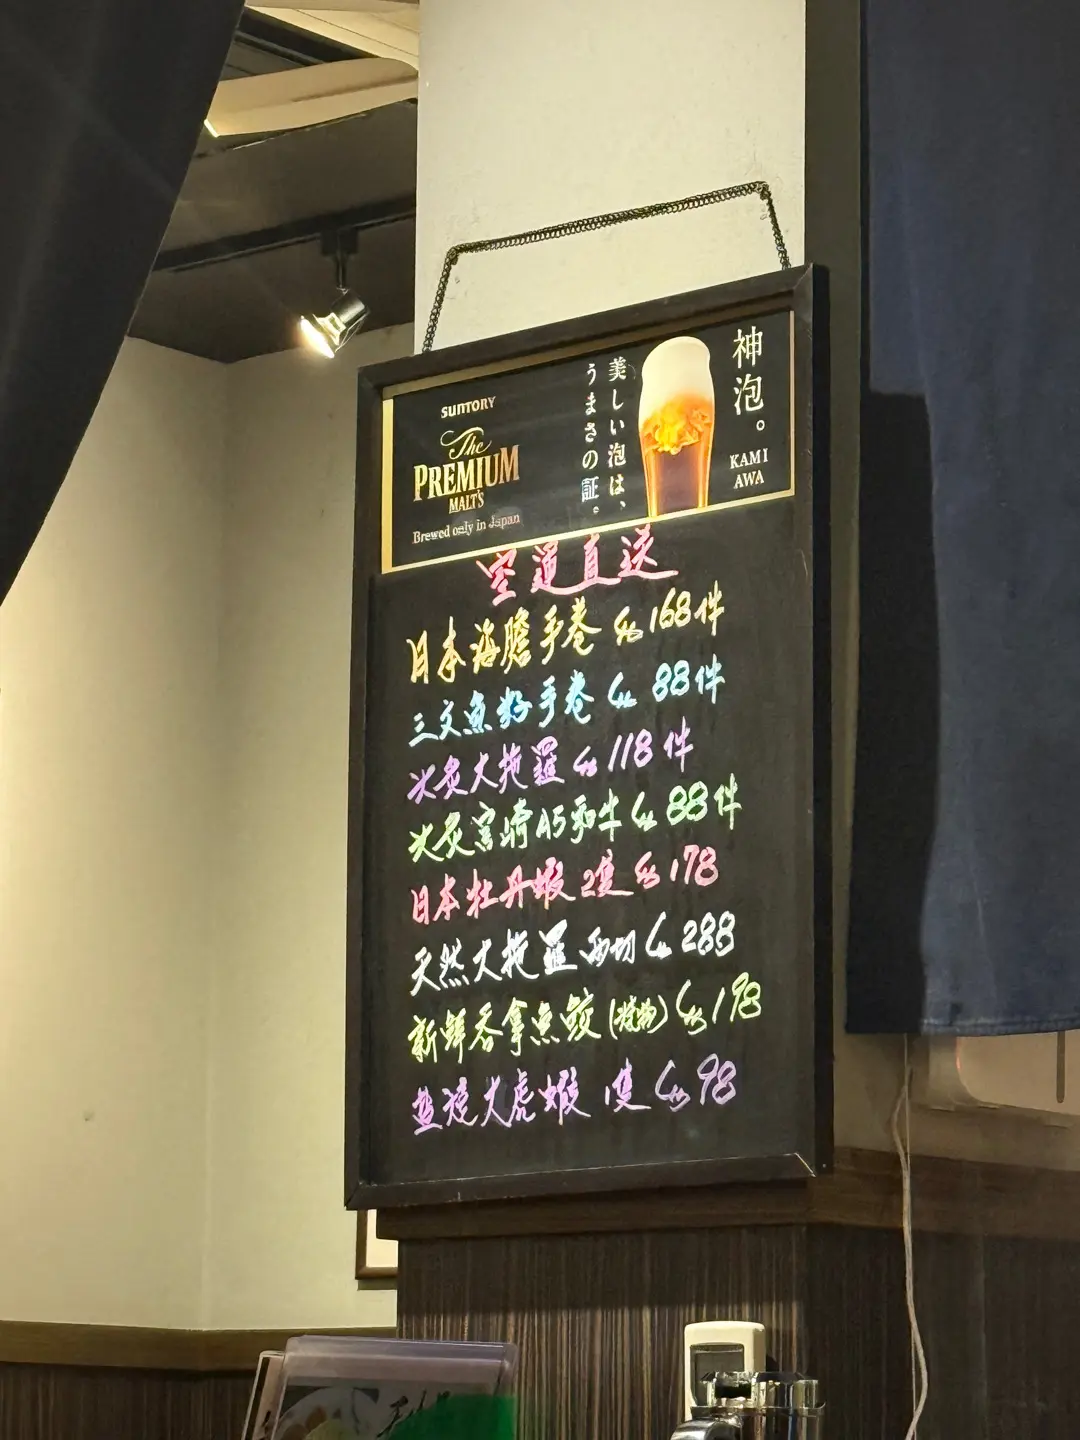 SUNTORY
The
PREMIUM
MALT'S
Brewed only in Japan
神泡。
KAMI
AWA
美しい泡は、
うまさの証。
空運直送
日本海膽手卷 168件
三文魚籽手卷 88件
火炙大拖羅 118件
火炙宮崎A5和牛 88件
日本牡丹蝦 2隻 178
天然大拖羅 西切 288
新鮮吞拿魚鮫(燒物) 198
鹽燒大虎蝦 1隻 98